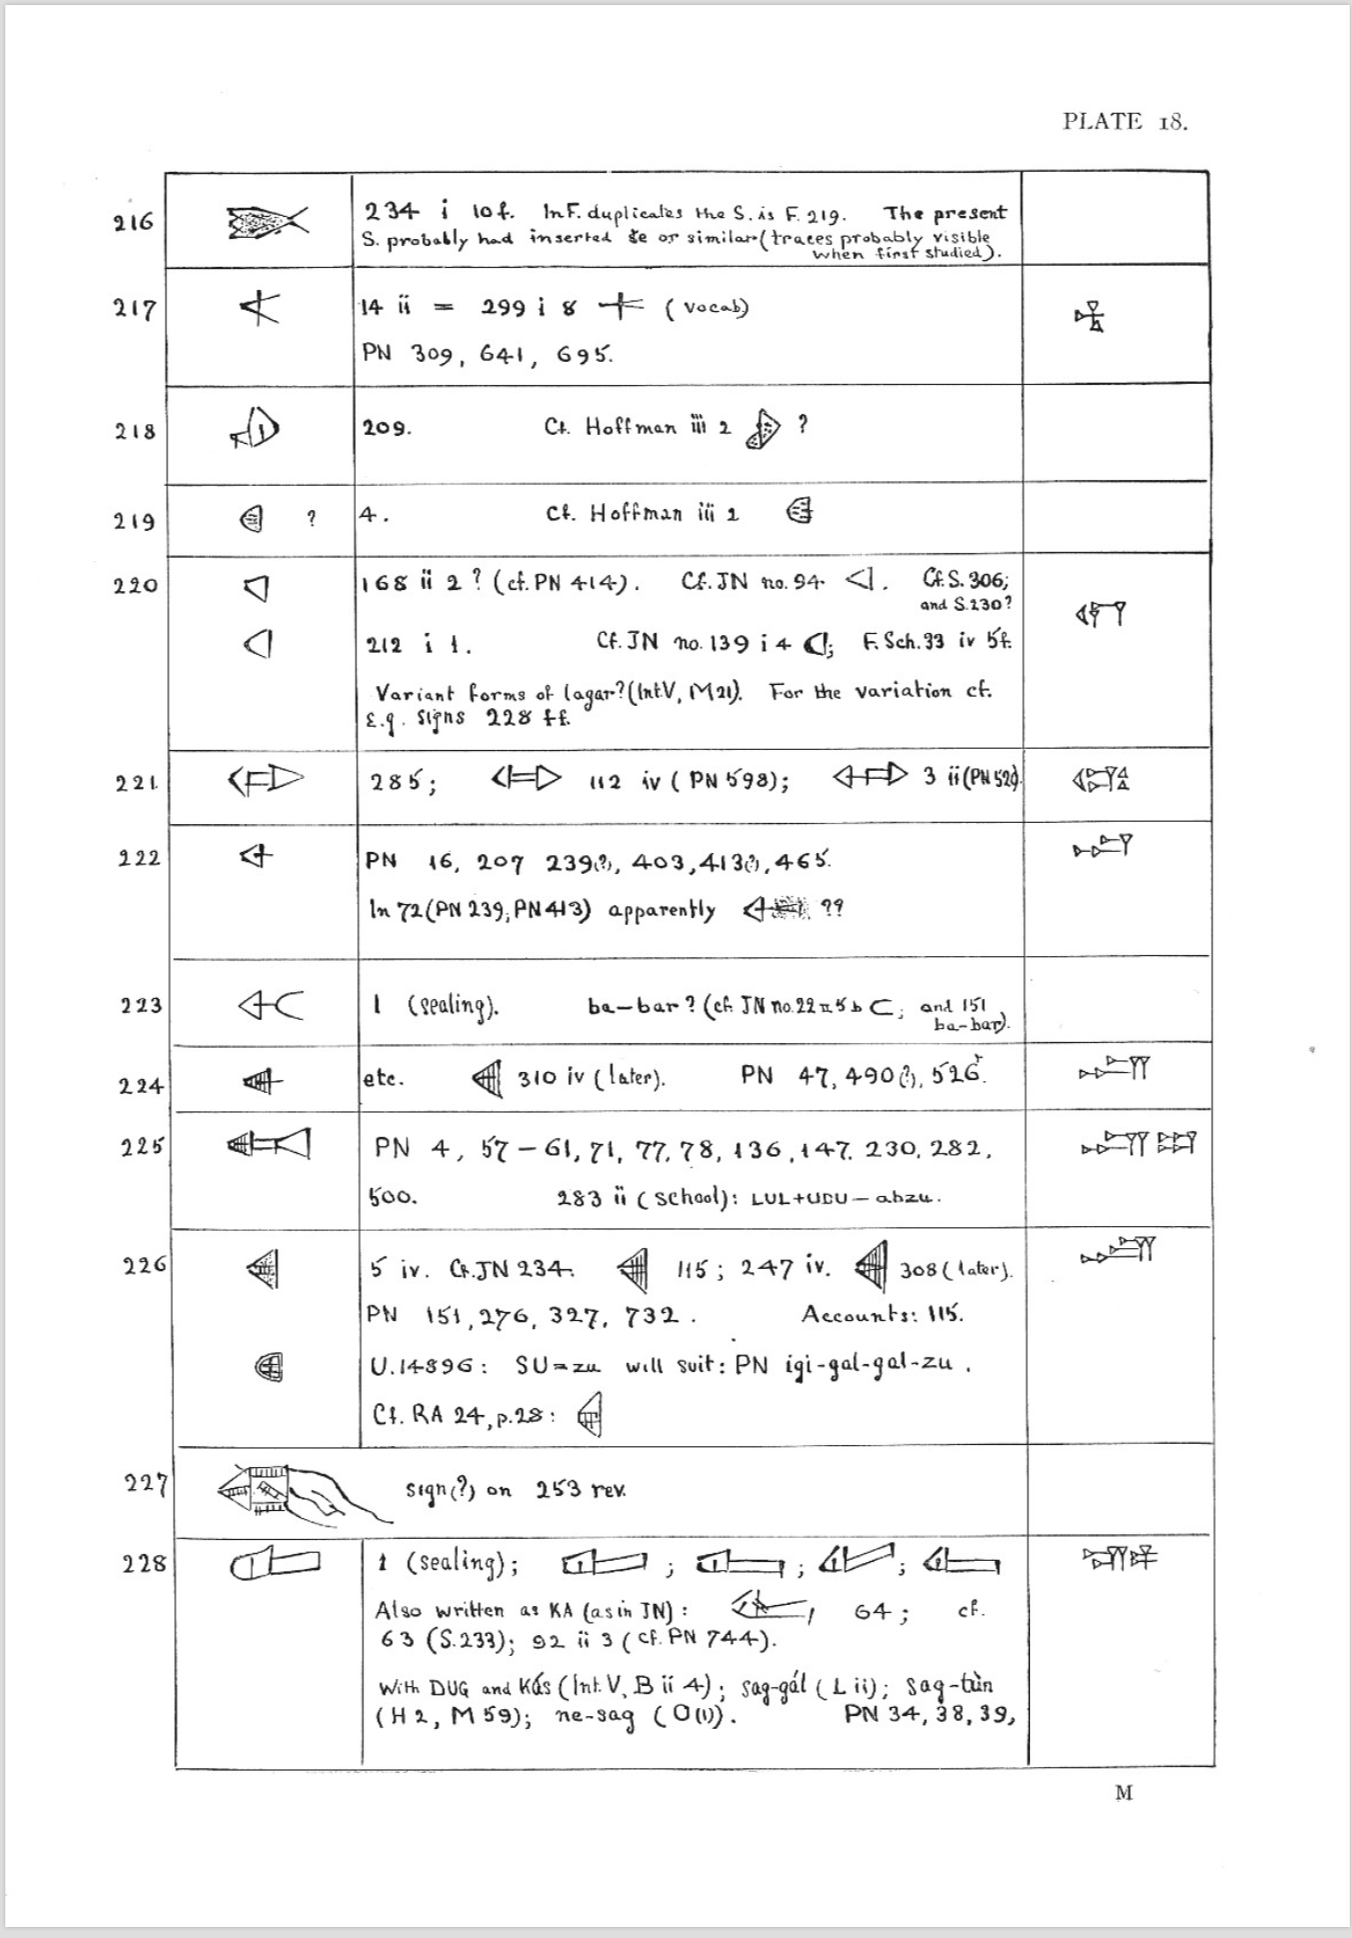 PLATE 18.
216
234 i 10f. In F. duplicates the S. is F. 219. The present
S. probably had inserted še or similar (traces probably visible
when first studied).
217
14 ii = 299 i 8 (vocab)
PN 309, 641, 695.
218
209. Cf. Hoffman iii 2 ?
219 ?
4. Cf. Hoffman iii 2
220
168 ii 2? (cf. PN 414). Cf. JN no. 94. Cf. S. 306;
and S.230?
212 i 1. Cf. JN no. 139 i 4 ; F. Sch. 33 iv 5f.
Variant forms of lagar? (Int.V, M21). For the variation cf.
E.g. signs 228 ff.
221.
285; 112 iv (PN 598); 3 ii (PN 520).
222
PN 16, 207 239(?), 403, 413(?), 465.
In 72 (PN 239; PN 413) apparently ??
223
1 (sealing). ba-bar? (cf. JN no. 22 ; and 151
ba-bar).
224
etc. 310 iv (later). PN 47, 490(?), 526.
225
PN 4, 57-61, 71, 77, 78, 136, 147, 230, 282,
500. 283 ii (school): LUL+UDU-abzu.
226
5 iv. Cf. JN 234. 115; 247 iv. 308 (later).
PN 151, 276, 327, 732. Accounts: 115.
U.14896: SU=zu will suit: PN igi-gal-gal-zu.
Cf. RA 24, p.28:
227
sign(?) on 253 rev.
228
1 (sealing); ; ; ;
Also written as KA (as in JN): , 64; cf.
63 (S.233); 92 ii 3 (cf. PN 744).
With DUG and Kás (Int. V, B ii 4); sag-gál (L ii); sag-tùn
(H 2, M 59); ne-sag (O(1)). PN 34, 38, 39,
M